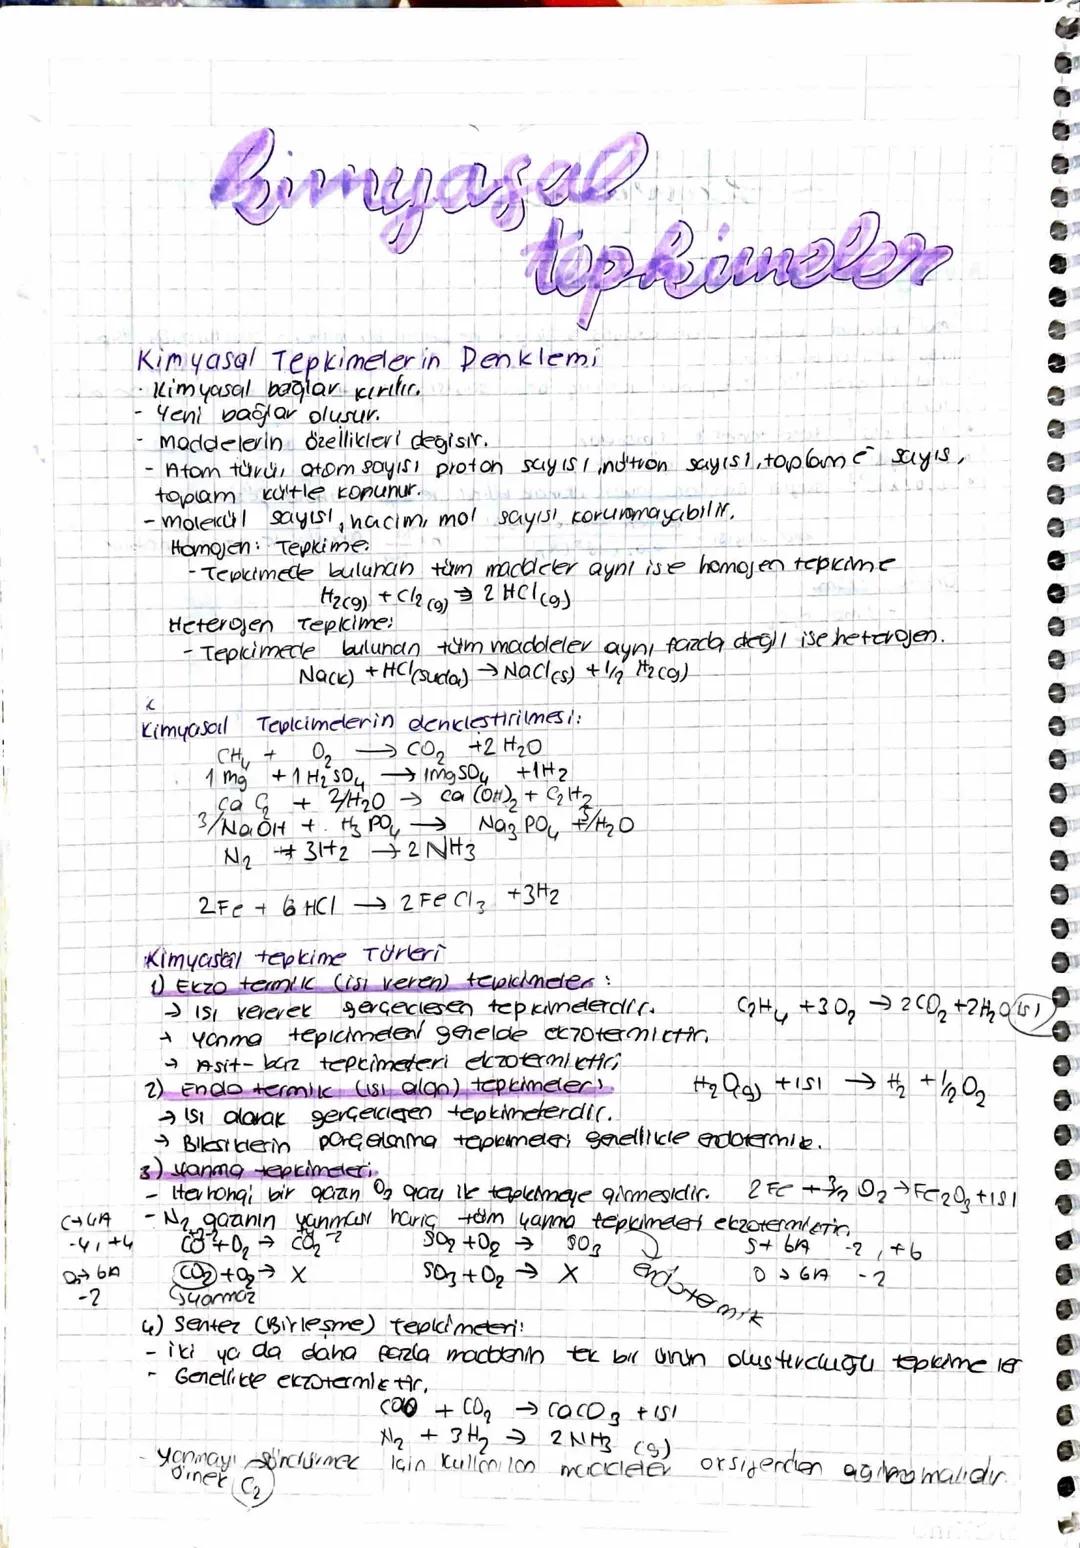 kimyasal
tepkimeler
Kimyasal Tepkimelerin Denklemi
- Kimyasal bağlar kırılır.
- Yeni bağlar oluşur.
- maddelerin özellikleri değişir.
- Atom türü, atom sayısı proton sayısı, nötron sayısı, toplam e⁻ sayıs,
toplam kütle korunur.
- molekül sayısı, hacim, mol sayısı korunmayabilir.
Homojen: Tepkime:
- Tepkimede bulunan tüm maddeler aynı ise homojen tepkime
H₂(g) + Cl₂(g) → 2 HCl(g)
Heterojen Tepkime:
- Tepkimede bulunan tüm maddeler aynı fazda değil ise heterojen.
Na(k) + HCl(suda) → NaCl(s) + 1/2 H₂(g)
Kimyasal Tepkimelerin denkleştirilmesi:
CH₄ + O₂ → CO₂ + 2 H₂O
1 mg + 1 H₂SO₄ → 1mgSO₄ + 1H₂
Ca C₂ + 2/H₂O → Ca (OH)₂ + C₂H₂
3/NaOH + H₃PO₄ → Na₃PO₄ + 3/H₂O
N₂ + 3H₂ → 2 NH₃
2Fe + 6 HCl → 2 FeCl₃ + 3H₂
Kimyasal tepkime Türleri
1) Ekzo termik (ısı veren) tepkimeler:
→ ısı vererek gerçekleşen tepkimelerdir. C₂H₄ + 3O₂ → 2CO₂ + 2H₂O (ısı)
→ yanma tepkimeleri genelde ekzotermiktir.
→ Asit-baz tepkimeleri ekzotermiktir;
2) Endo termik (ısı alan) tepkimeler: H₂O(g) + ısı → H₂ + 1/2 O₂
→ ısı alarak gerçekleşen tepkimelerdir.
→ Bileşiklerin parçalanma tepkimeleri genellikle endotermik.
3) yanma tepkimeleri.
- Herhangi bir gazın O₂ gazı ile tepkimeye girmesidir. 2 Fe + 3/2 O₂ → Fe₂O₃ + ısı
C→4A - N₂ gazının yanması hariç tüm yanma tepkimeleri ekzotermiktir.
-4, +4 CO + O₂ → CO₂ SO₂ + O₂ → SO₃ S→ 6A -2, +6
O→ 6A CO₂ + O₂ → X SO₃ + O₂ → X endotermik O → 6A -2
-2 yanmaz
4) Sentez (Birleşme) tepkimeleri:
- iki ya da daha fazla maddenin tek bir ürün oluşturduğu tepkimeler
- Genellikle ekzotermiktir.
CaO + CO₂ → CaCO₃ + ısı
N₂ + 3H₂ → 2 NH₃ (g)
- yanmayı söndürmek için kullanılan maddeler oksijenden ağır olmalıdır.
örnek C₂